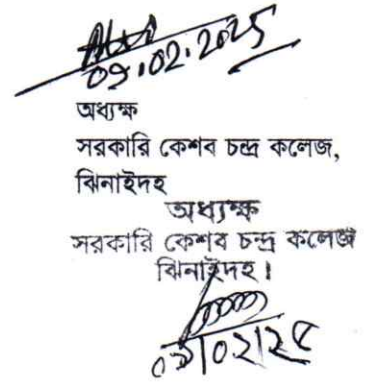 09.02.2025
অধ্যক্ষ
সরকারি কেশব চন্দ্র কলেজ,
ঝিনাইদহ
অধ্যক্ষ
সরকারি কেশব চন্দ্র কলেজ
ঝিনাইদহ।
০৯/০২/২৫